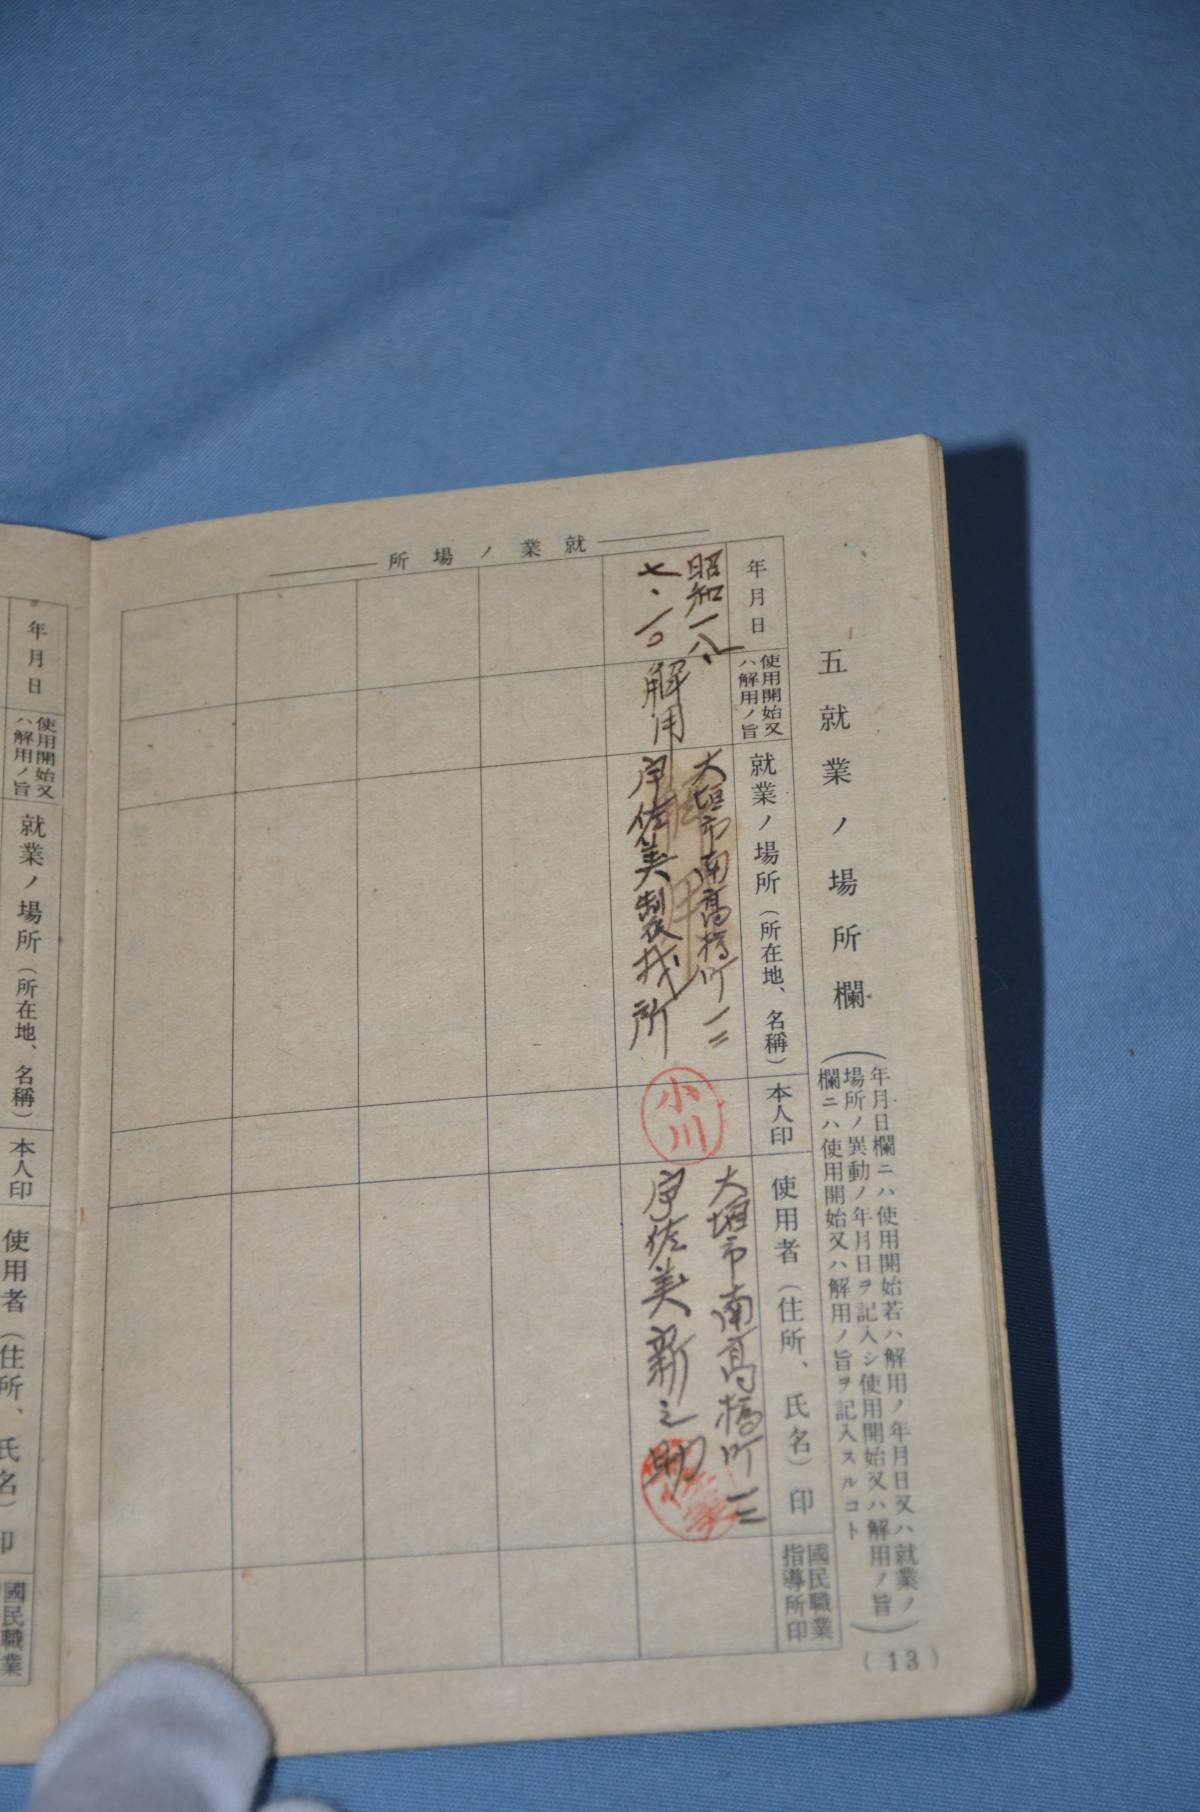 五 就業ノ場所欄
(年月日欄ニハ使用開始若ハ解用ノ年月日又ハ就業ノ
場所ノ異動ノ年月日ヲ記入シ使用開始又ハ解用ノ旨
欄ニハ使用開始又ハ解用ノ旨ヲ記入スルコト)
就業ノ場所
年月日
使用開始又
ハ解用ノ旨
就業ノ場所(所在地、名稱)
本人印
使用者(住所、氏名)印
國民職業
指導所印
昭和一八、
七、一〇
解用
大垣市南高橋町一ニ
宇佐美製材所
小川
大垣市南高橋町一ニ
宇佐美新之助
(13)
年月日
使用開始又
ハ解用ノ旨
就業ノ場所(所在地、名稱)
本人印
使用者(住所、氏名)印
國民職業